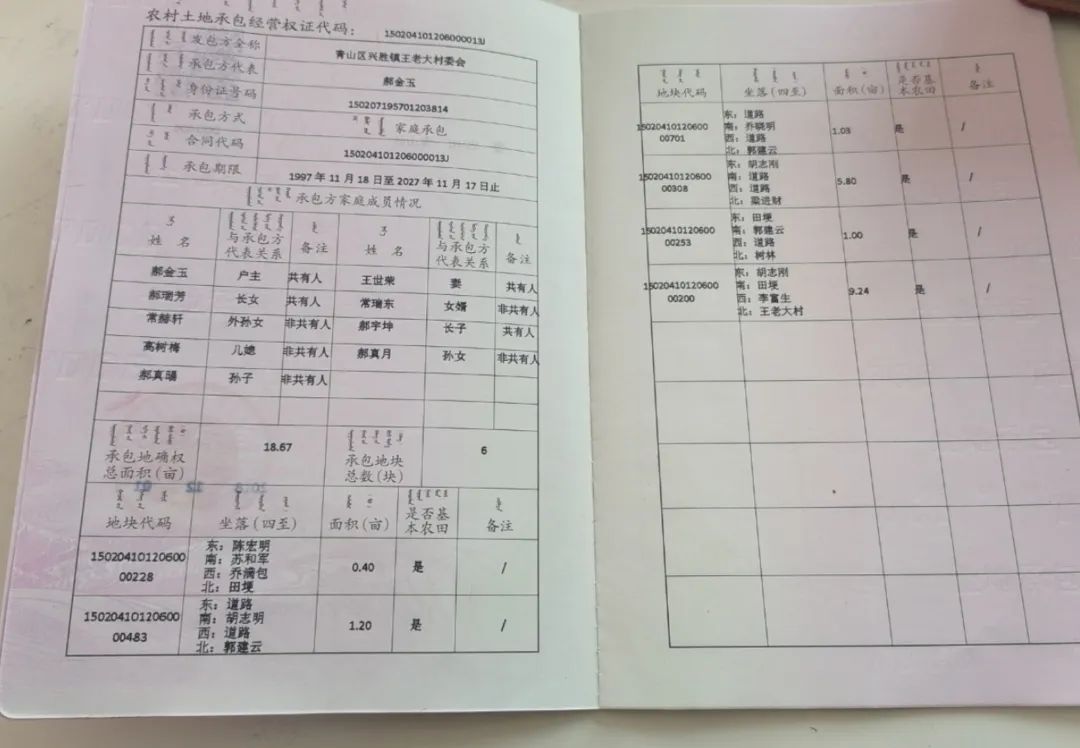 农村土地承包经营权证代码： 150204101206000013J
发包方全称 青山区兴胜镇王老大村委会
承包方代表 郝金玉
身份证号码 150207195701203814
承包方式 家庭承包
合同代码 150204101206000013J
承包期限 1997年11月18日至2027年11月17日止
承包方家庭成员情况
姓 名 与承包方代表关系 备注 姓 名 与承包方代表关系 备注
郝金玉 户主 共有人 王世荣 妻 共有人
郝瑞芳 长女 共有人 常瑞东 女婿 非共有人
常赫轩 外孙女 非共有人 郝宇坤 长子 共有人
高树梅 儿媳 非共有人 郝真月 孙女 非共有人
郝真 孙子 非共有人
承包地确权总面积（亩） 18.67 承包地块总数（块） 6
地块代码 坐落（四至） 面积（亩） 是否基本农田 备注
1502041012060000228 东：陈宏明 0.40 是 /
南：苏和军
西：乔满包
北：田埂
1502041012060000483 东：道路 1.20 是 /
南：胡志明
西：道路
北：郭建云
地块代码 坐落（四至） 面积（亩） 是否基本农田 备注
1502041012060000701 东：道路 1.03 是 /
南：乔晓明
西：道路
北：郭建云
1502041012060000308 东：胡志刚 5.80 是 /
南：道路
西：道路
北：梁进财
1502041012060000253 东：田埂 1.00 是 /
南：郭建云
西：道路
北：树林
1502041012060000200 东：胡志刚 9.24 是 /
南：田埂
西：李富生
北：王老大村